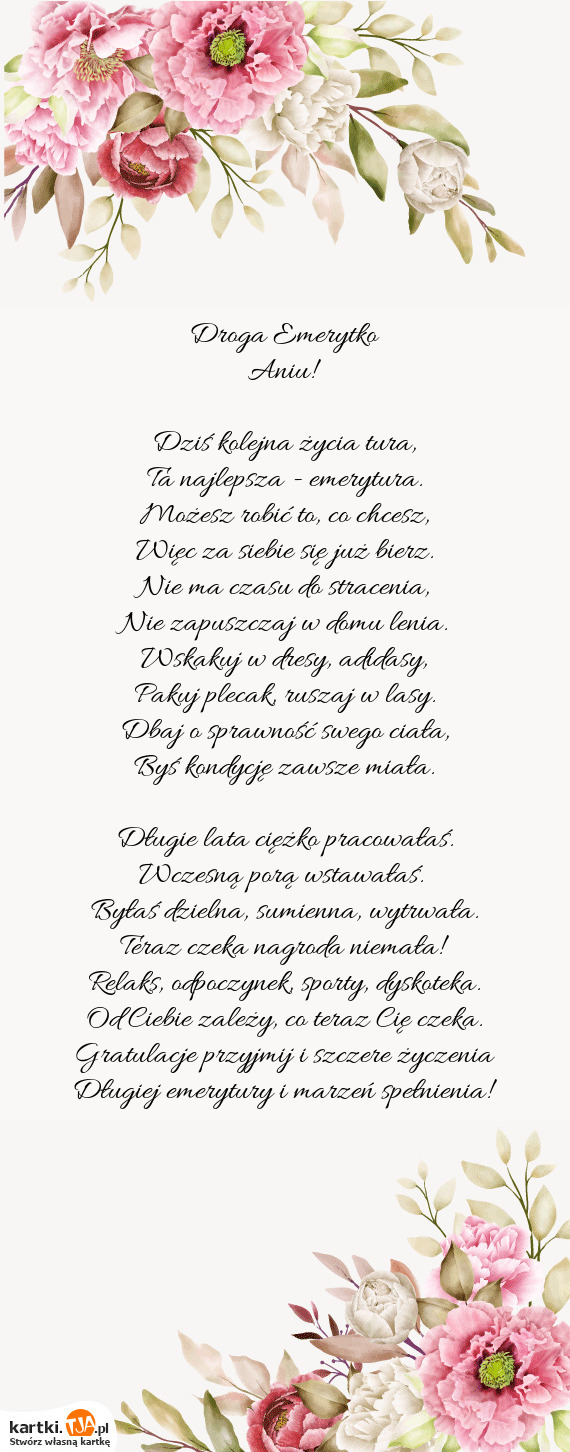 Droga Emerytko
Aniu!
Dziś kolejna życia tura,
Ta najlepsza - emerytura.
Możesz robić to, co chcesz,
Więc za siebie się już bierz.
Nie ma czasu do stracenia,
Nie zapuszczaj w domu lenia.
Wskakuj w dresy, adidasy,
Pakuj plecak, ruszaj w lasy.
Dbaj o sprawność swego ciała,
Byś kondycję zawsze miała.
Długie lata ciężko pracowałaś.
Wczesną porą wstawałaś.
Byłaś dzielna, sumienna, wytrwała.
Teraz czeka nagroda niemała!
Relaks, odpoczynek, sporty, dyskoteka.
Od Ciebie zależy, co teraz Cię czeka.
Gratulacje przyjmij i szczere życzenia
Długiej emerytury i marzeń spełnienia!
kartki.TJA.pl
Stwórz własną kartkę